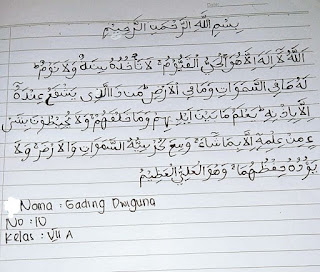 بِسْمِ اللّٰهِ الرَّحْمٰنِ الرَّحِيْمِ
اَللّٰهُ لَآ اِلٰهَ اِلَّا هُوَ الْحَيُّ الْقَيُّوْمُ ۚ لَا تَأْخُذُهٗ سِنَةٌ وَّلَا نَوْمٌ ۗ
لَهٗ مَا فِى السَّمٰوٰتِ وَمَا فِى الْاَرْضِ ۗ مَنْ ذَا الَّذِيْ يَشْفَعُ عِنْدَهٗٓ
اِلَّا بِاِذْنِهٖ ۗ يَعْلَمُ مَا بَيْنَ اَيْدِيْهِمْ وَمَا خَلْفَهُمْ ۚ وَلَا يُحِيْطُوْنَ بِشَيْ
ءٍ مِّنْ عِلْمِهٖٓ اِلَّا بِمَا شَاۤءَ ۚ وَسِعَ كُرْسِيُّهُ السَّمٰوٰتِ وَالْاَرْضَ ۚ وَلَا
يَـُٔوْدُهٗ حِفْظُهُمَا ۚ وَهُوَ الْعَلِيُّ الْعَظِيْمُ
Nama : Gading Dwiguna
No : 10
Kelas : VII A